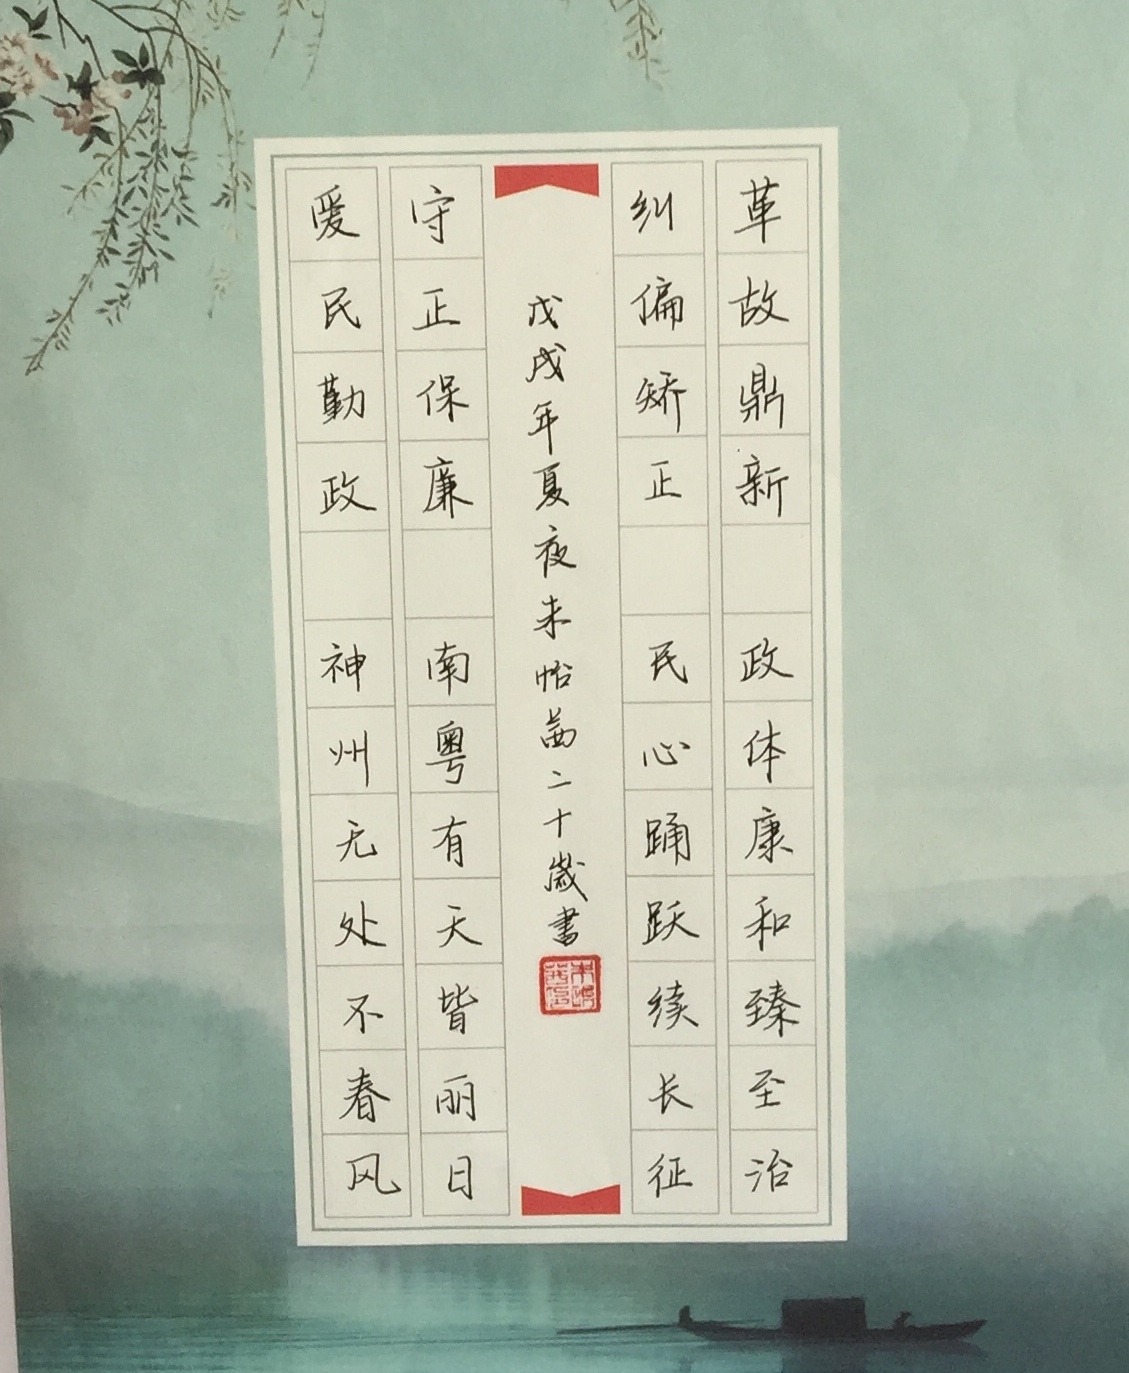 革故鼎新 政体康和臻至治
纠偏矫正 民心踊跃续长征
戊戌年夏夜朱怡茜二十岁书
守正保廉 南粤有天皆丽日
爱民勤政 神州无处不春风